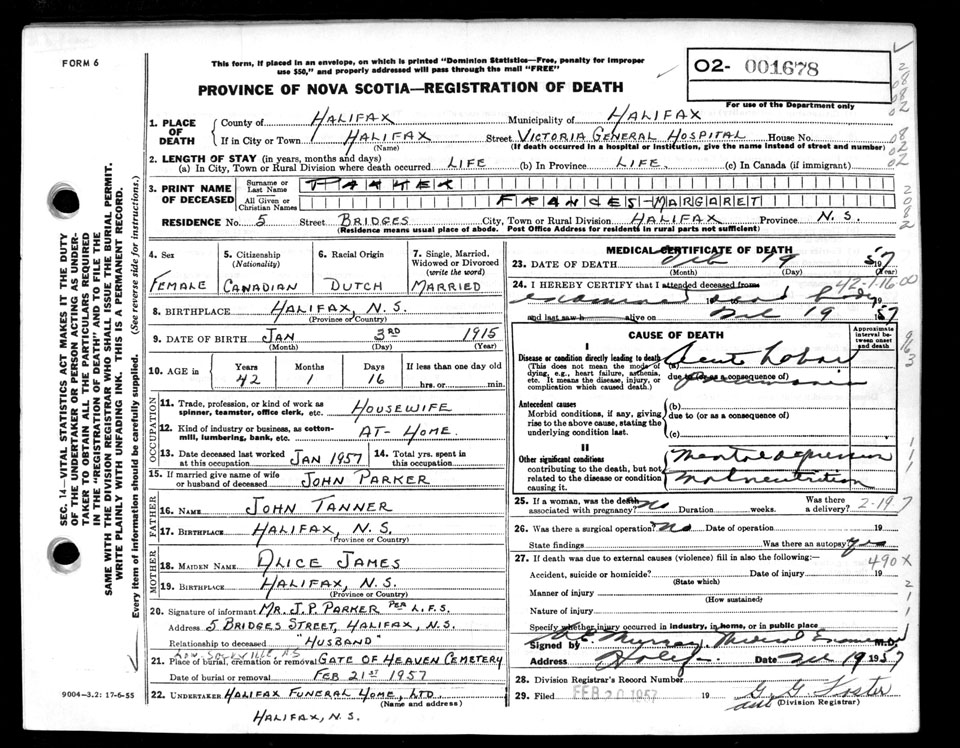 FORM 6
This form, if placed in an envelope, on which is printed "Dominion Statistics—Free, penalty for improper
use $50," and properly addressed will pass through the mail "FREE"
O2- 001678
For use of the Department only
PROVINCE OF NOVA SCOTIA—REGISTRATION OF DEATH
1. PLACE OF DEATH
County of HALIFAX Municipality of HALIFAX
If in City or Town HALIFAX Street VICTORIA GENERAL HOSPITAL House No.
(Name) (If death occurred in a hospital or institution, give the name instead of street and number)
2. LENGTH OF STAY (in years, months and days)
(a) In City, Town or Rural Division where death occurred LIFE (b) In Province LIFE. (c) In Canada (if immigrant)
3. PRINT NAME OF DECEASED
Surname or Last Name PARKER
All Given or Christian Names FRANCES-MARGARET
RESIDENCE No. 5 Street BRIDGES City, Town or Rural Division HALIFAX Province N.S.
(Residence means usual place of abode. Post Office Address for residents in rural parts not sufficient)
4. Sex
FEMALE
5. Citizenship
(Nationality)
CANADIAN
6. Racial Origin
DUTCH
7. Single, Married,
Widowed or Divorced
(write the word)
MARRIED
8. BIRTHPLACE HALIFAX, N.S.
(Province or Country)
9. DATE OF BIRTH JAN 3RD 1915
(Month) (Day) (Year)
10. AGE in
Years Months Days If less than one day old
42 1 16 hrs. or min.
OCCUPATION
11. Trade, profession, or kind of work as
spinner, teamster, office clerk, etc. HOUSEWIFE
12. Kind of industry or business, as cotton-
mill, lumbering, bank, etc. AT- HOME.
13. Date deceased last worked
at this occupation JAN 1957
14. Total yrs. spent in
this occupation
15. If married give name of wife
or husband of deceased JOHN PARKER
FATHER
16. NAME JOHN TANNER
17. BIRTHPLACE HALIFAX, N.S.
(Province or Country)
MOTHER
18. MAIDEN NAME ALICE JAMES
19. BIRTHPLACE HALIFAX, N.S.
(Province or Country)
20. Signature of informant MR. J.P. PARKER PER L.F.S.
Address 5 BRIDGES STREET, HALIFAX, N.S.
Relationship to deceased "HUSBAND"
21. Place of burial, cremation or removal GATE OF HEAVEN CEMETERY
Date of burial or removal FEB 21ST 1957
22. UNDERTAKER HALIFAX FUNERAL HOME, LTD.
(Name and address)
HALIFAX, N.S.
MEDICAL CERTIFICATE OF DEATH
23. DATE OF DEATH Feb 19 1957
(Month) (Day) (Year)
42-1-16.00
24. I HEREBY CERTIFY that I attended deceased from
examined dead body
and last saw h alive on Feb 19 1957
CAUSE OF DEATH
Approximate interval between onset and death
I
Disease or condition directly leading to death
(This does not mean the mode of
dying, e.g., heart failure, asthenia,
etc. It means the disease, injury, or
complication which caused death.)
(a) Acute Lobar
due to (or as a consequence of)
Pneumonia
Antecedent causes
Morbid conditions, if any, giving
rise to the above cause, stating the
underlying condition last.
(b)
due to (or as a consequence of)
(c)
II
Other significant conditions
contributing to the death, but not
related to the disease or condition
causing it.
Mental depression
Malnutrition
25. If a woman, was the death
associated with pregnancy? no Duration weeks. Was there
a delivery? 2-19 7
26. Was there a surgical operation? no Date of operation 19
State findings Was there an autopsy? yes
27. If death was due to external causes (violence) fill in also the following: 490 X
Accident, suicide or homicide? Date of injury 19
(State which)
Manner of injury
(How sustained)
Nature of injury
Specify whether injury occurred in industry, in home, or in public place
Signed by Murray Medical Examiner M.D.
Address Hfx Date Feb 19 1957
28. Division Registrar's Record Number
29. Filed FEB 20 1957 19 G. G. Foster
(Division Registrar)
SEC. 14—VITAL STATISTICS ACT MAKES IT THE DUTY
OF THE UNDERTAKER OR PERSON ACTING AS UNDER-
TAKER TO OBTAIN ALL THE PARTICULARS REQUIRED
IN THE "REGISTRATION OF DEATH" AND TO FILE THE
SAME WITH THE DIVISION REGISTRAR WHO SHALL ISSUE THE BURIAL PERMIT.
WRITE PLAINLY WITH UNFADING INK. THIS IS A PERMANENT RECORD.
Every item of information should be carefully supplied. (See reverse side for instructions.)
9004-3.2: 17-6-55